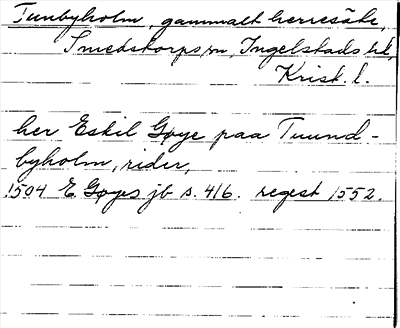 Tunbyholm, gammalt herresäte,
Smedstorps sn, Ingelstads hd,
Krist. l.
her Eskil Gøye paa Tuund-
byholm, rider,
1504 E. Gøyes jb s. 416. regest 1552.